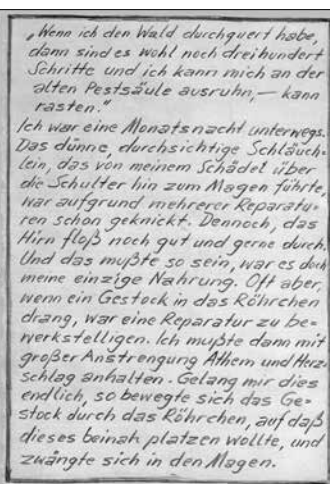 „Wenn ich den Wald durchquert habe,
dann sind es wohl noch dreihundert
Schritte und ich kann mich an der
alten Pestsäule ausruhn, — kann
rasten."
Ich war eine Monatsnacht unterwegs.
Das dünne, durchsichtige Schläuch-
lein, das von meinem Schädel über
die Schulter hin zum Magen führte,
war aufgrund mehrerer Reparatu-
ren schon geknickt. Dennoch, das
Hirn floß noch gut und gerne durch.
Und das mußte so sein, war es doch
meine einzige Nahrung. Oft aber,
wenn ein Gestock in das Röhrchen
drang, war eine Reparatur zu be-
werkstelligen. Ich mußte dann mit
großer Anstrengung Athem und Herz-
schlag anhalten. Gelang mir dies
endlich, so bewegte sich das Ge-
stock durch das Röhrchen, auf daß
dieses beinah platzen wollte, und
zwängte sich in den Magen.